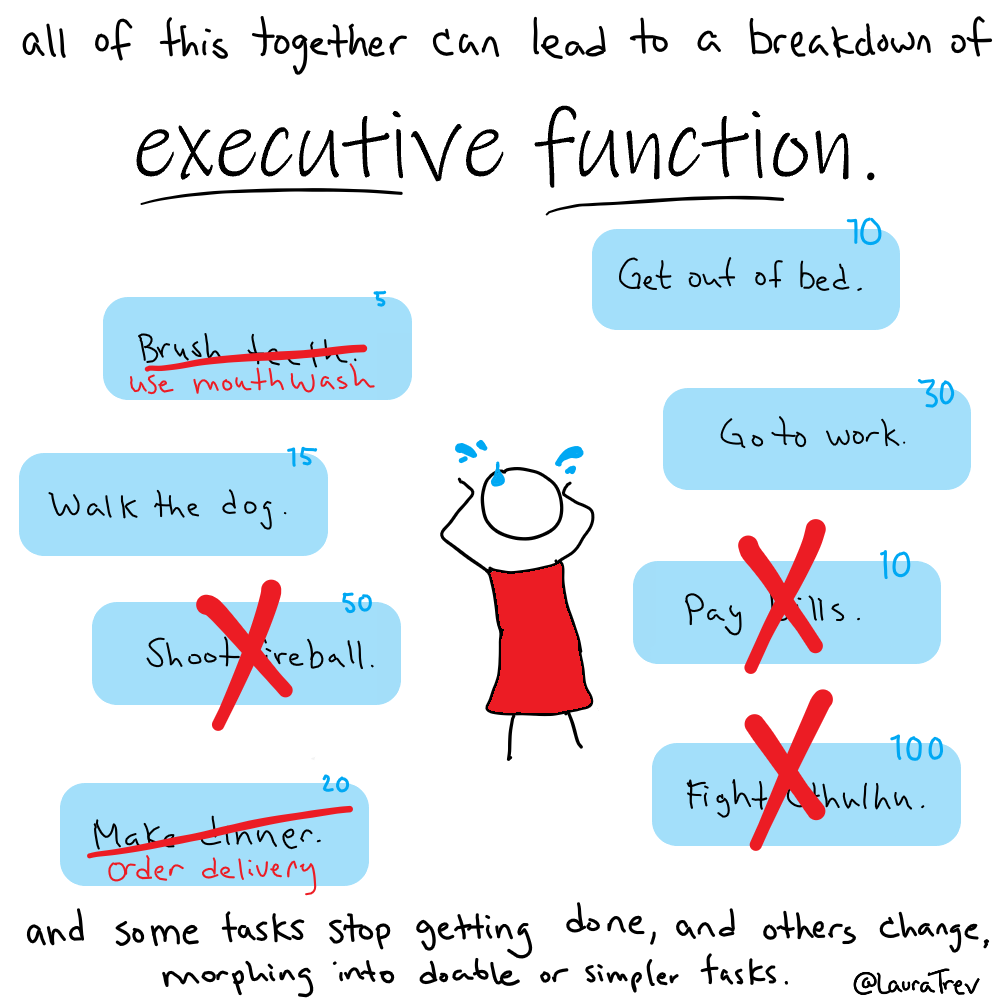 all of this together can lead to a breakdown of
executive function.
10
Get out of bed.
5
Brush teeth.
use mouthwash
30
Go to work.
15
Walk the dog.
10
Pay bills.
50
Shoot fireball.
100
Fight Cthulhu.
20
Make dinner.
order delivery
and some tasks stop getting done, and others change,
morphing into doable or simpler tasks.
@LauraTrev